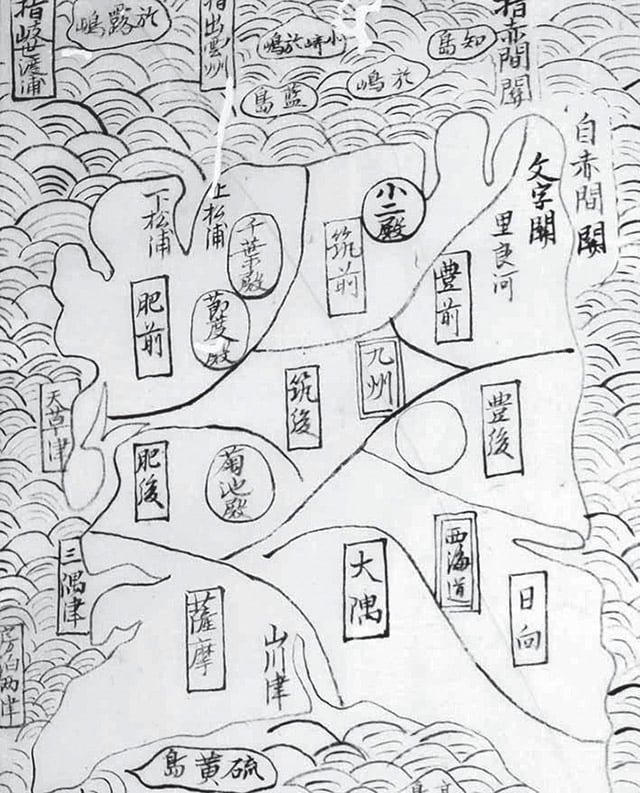 指赤間關
指出雲州
渡浦
知島
小崎於嶋
於露嶋
於嶋
藍島
自赤間關
文字關
里良河
豊前
小二殿
筑前
上松浦
千葉殿
下松浦
節度殿
肥前
九州
筑後
豊後
天草津
菊池殿
肥後
西海道
日向
大隅
三隅津
薩摩
山川津
房泊兩津
硫黄島